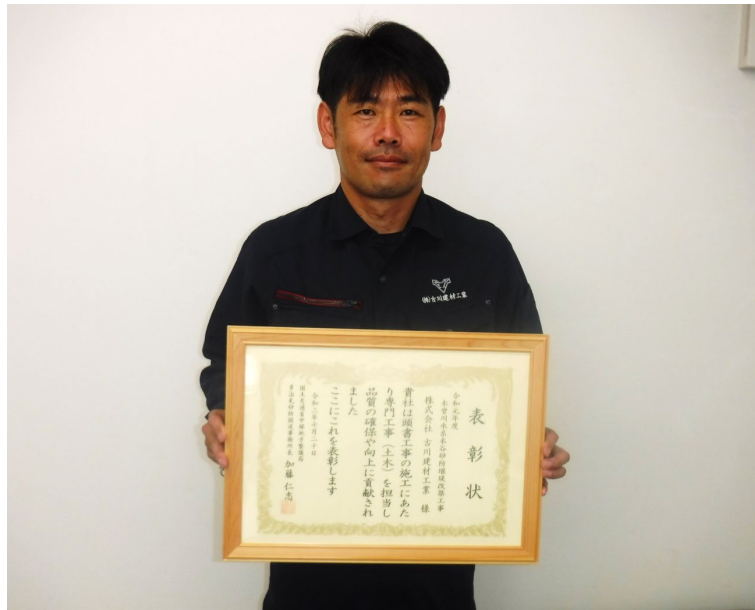 (株)古川建材工業
表彰状
令和元年度
木曽川水系本谷砂防堰堤改築工事
株式会社 古川建材工業 様
貴社は頭書工事の施工にあた
り専門工事(土木)を担当し
品質の確保や向上に貢献され
ました
ここにこれを表彰します
令和二年七月二十日
国土交通省中部地方整備局
多治見砂防国道事務所長 加藤 仁志